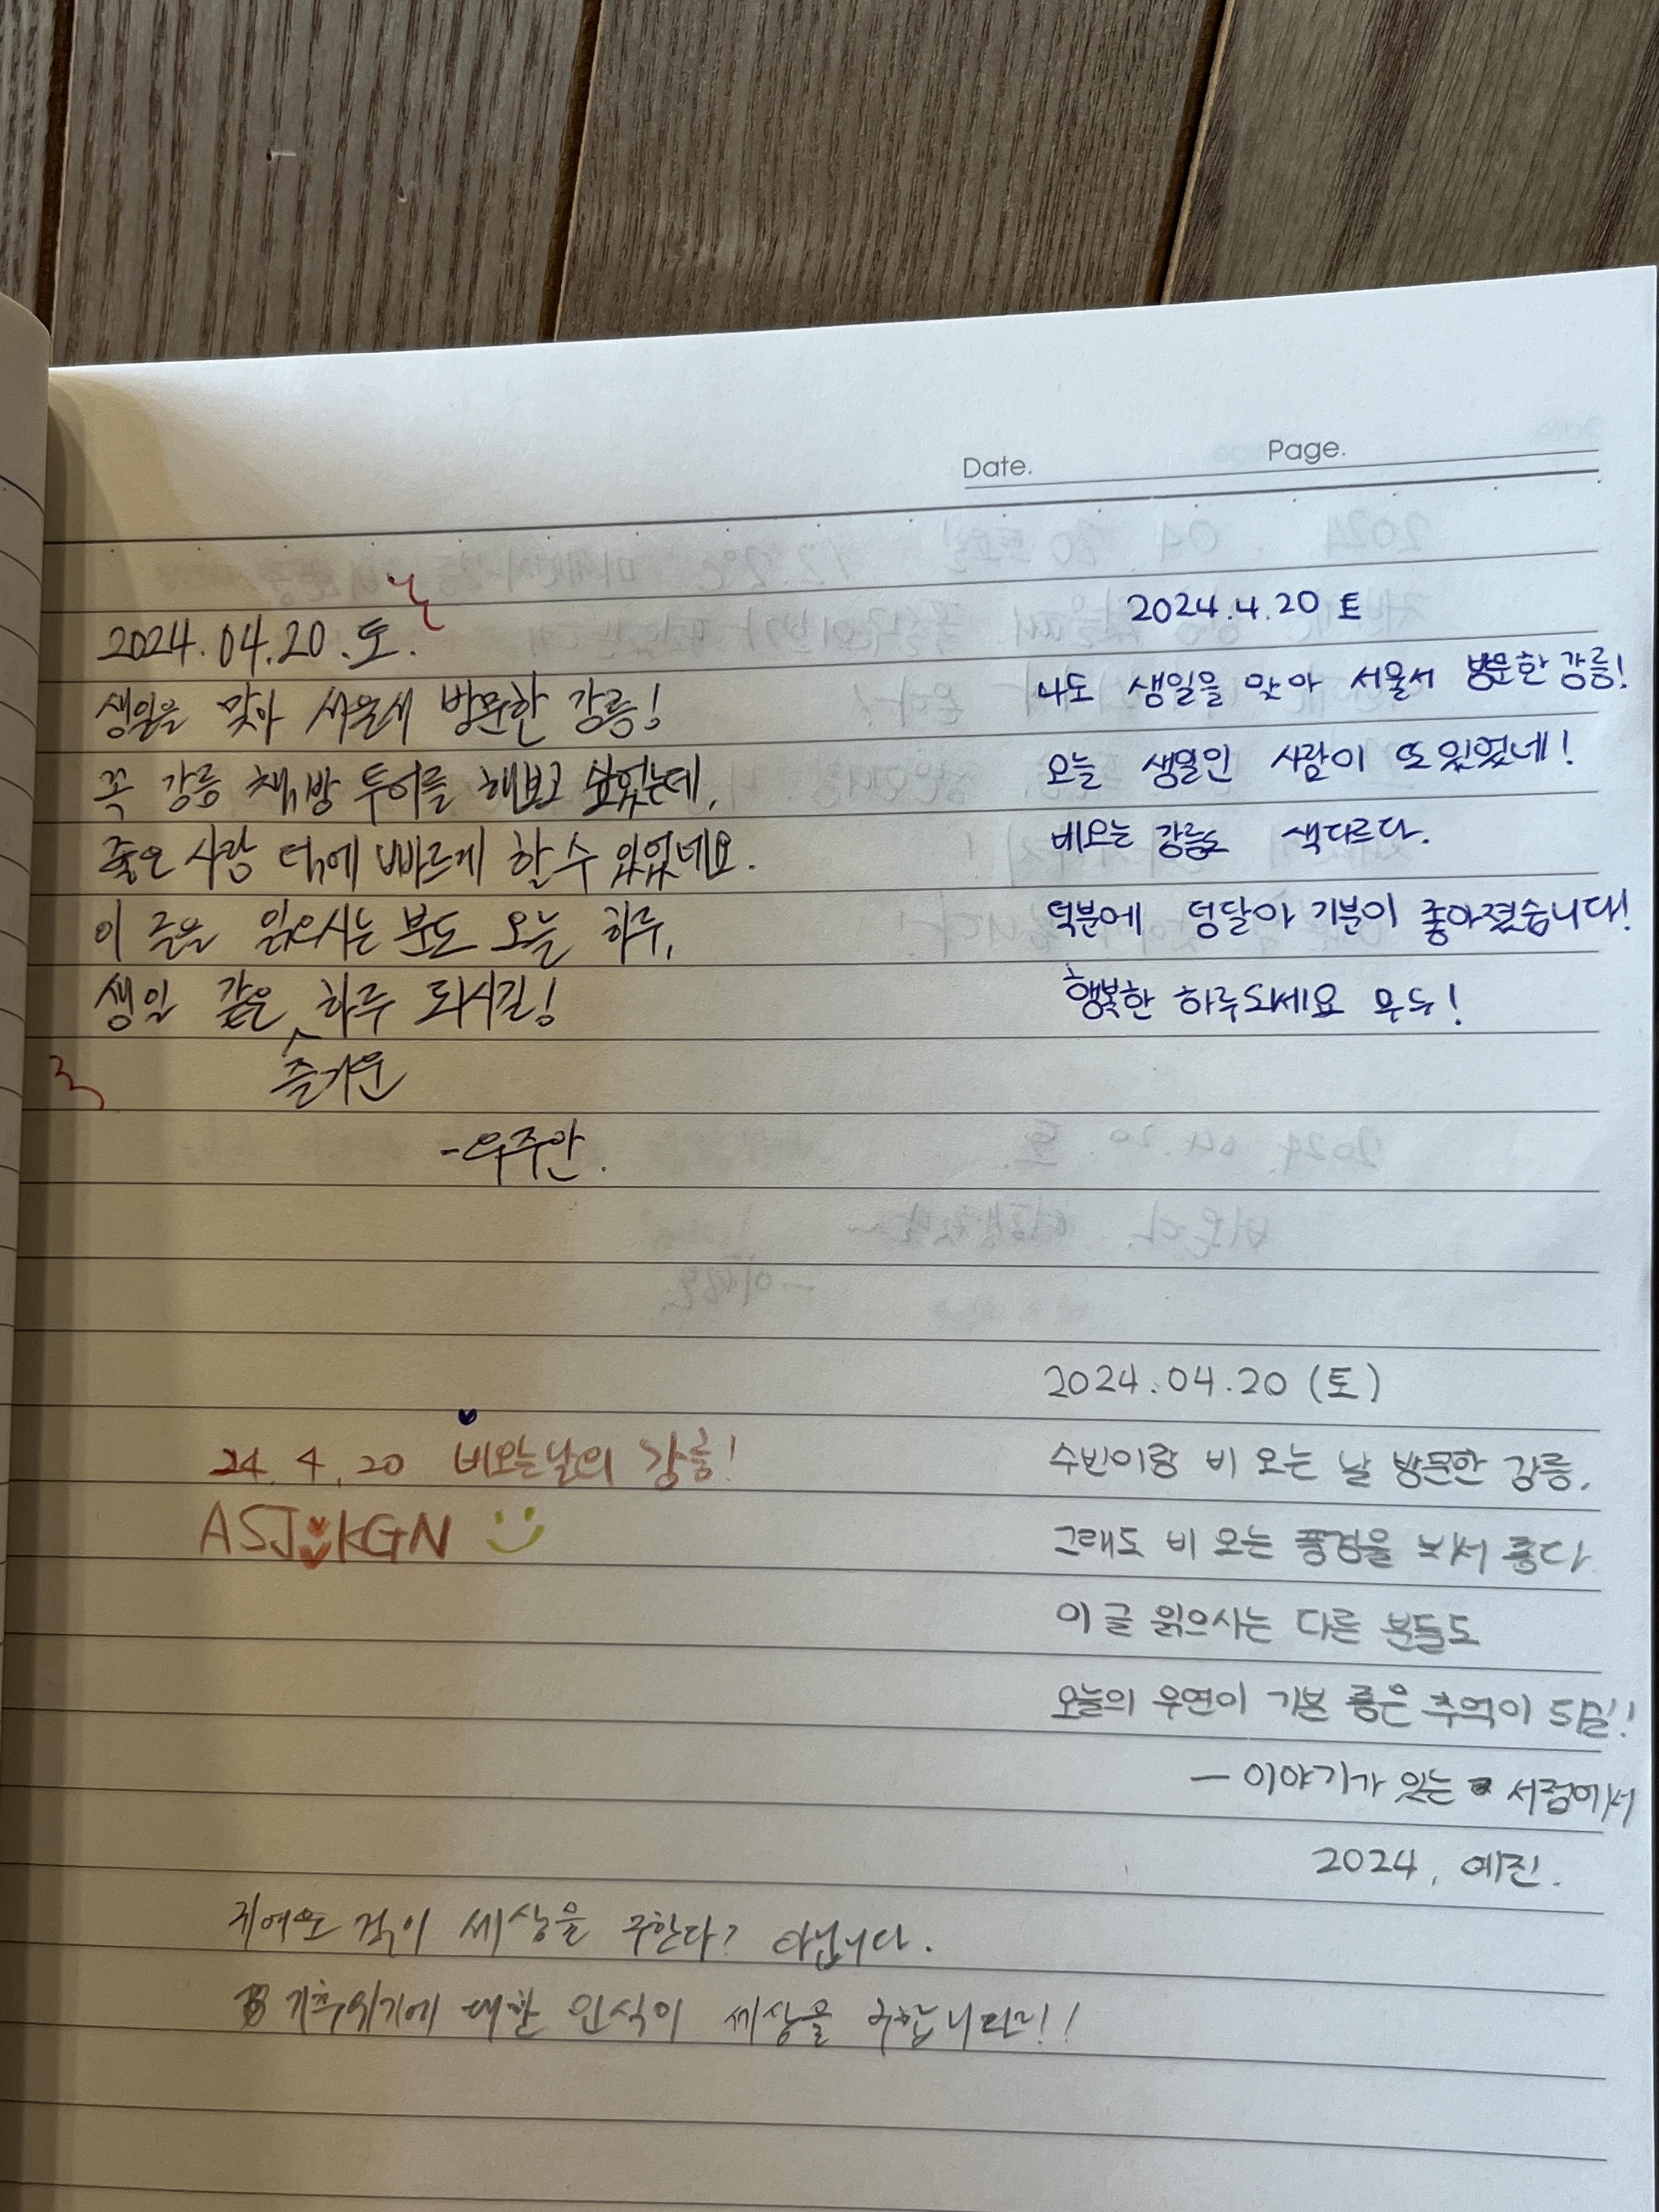 Date.
Page.
2024.04.20.토.
생일을 맞아 서울서 방문한 강릉!
꼭 강릉 책방 투어를 해보고 싶었는데,
좋은 사람 덕에 빠르게 할 수 있었네요.
이 글을 읽으시는 분도 오늘 하루,
생일 같은 하루 되시길!
즐거운
-우주안.
2024.4.20 토
나도 생일을 맞아 서울서 방문한 강릉!
오늘 생일인 사람이 또 있었네!
비오는 강릉도 색다르다.
덕분에 덩달아 기분이 좋아졌습니다!
행복한 하루되세요 모두!
24.4.20 비오는날의 강릉!
ASJ KGN
2024.04.20 (토)
수빈이랑 비 오는 날 방문한 강릉,
그래도 비 오는 풍경을 봐서 좋다
이 글 읽으시는 다른 분들도
오늘의 우연이 기분 좋은 추억이 되길!!
— 이야기가 있는 서점에서
2024, 예진.
귀여운 것이 세상을 구한다? 아닙니다.
기후위기에 대한 인식이 세상을 구합니다!!